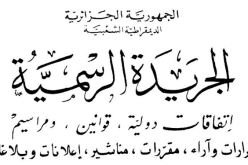 الجمهورية الجزائرية
الديمقراطية الشعبية
الجريدة الرسمية
إتفاقات دولية ، قوانين ، ومراسيم
وآراء ، مقررات ، مناشير ، إعلانات